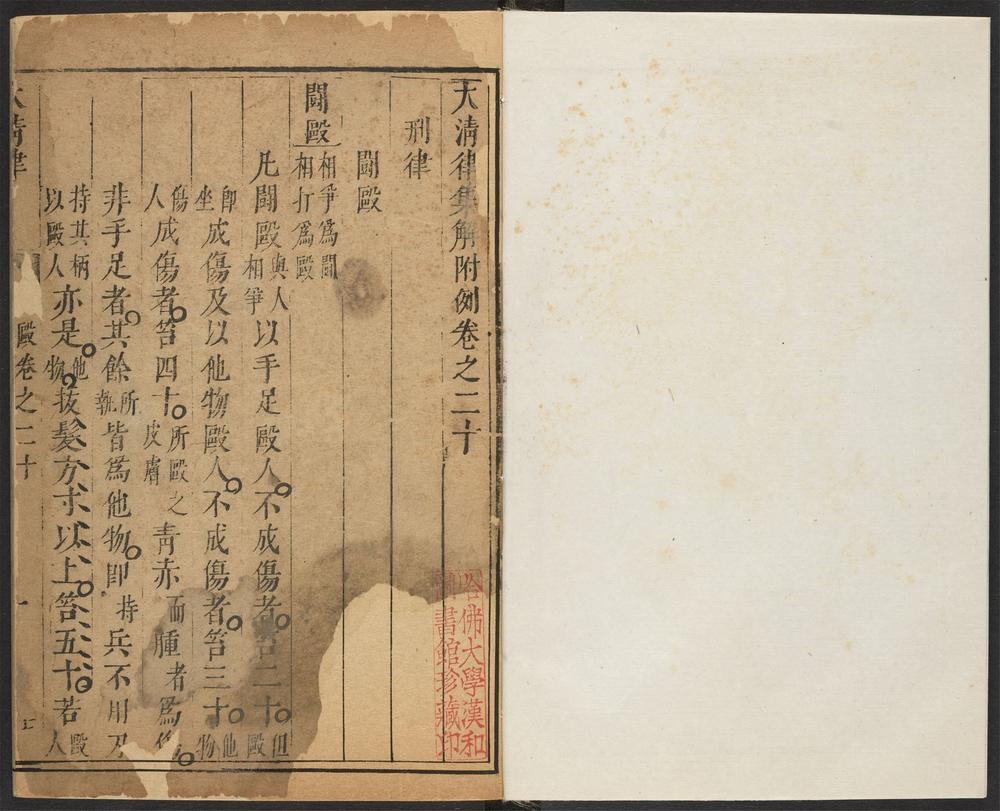 大清律集解附例卷之二十
刑律
鬪毆
鬪毆 相爭爲鬪相打爲毆
凡鬪毆 與人相爭 以手足毆人不成傷者笞二十 但毆
即坐 成傷及以他物毆人不成傷者笞三十 他物
傷人 成傷者笞四十 所毆之皮膚 青赤 而 腫 者 爲
非手足者其餘 所執 皆爲他物即 持 兵不用刃
持其柄以毆人 亦是 他物 拔髮方寸以上笞五十若 毆人
清律
毆卷之二十
一
哈佛大學漢和
圖書館珍藏印